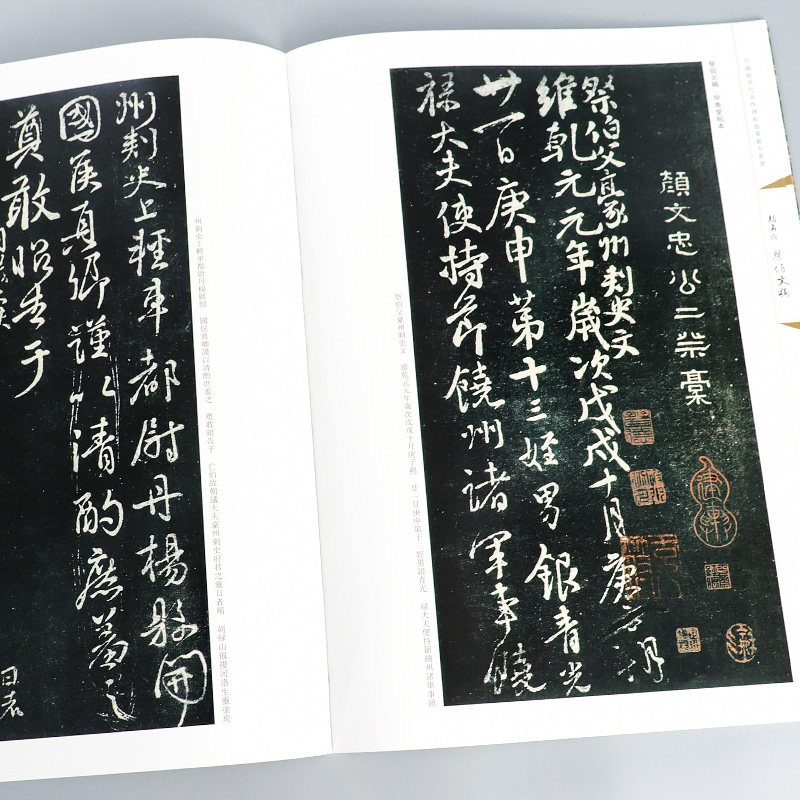 顏真卿 祭伯文稿
祭伯文稿
顏文忠公二祭稾
祭伯父豪州刺史文
維乾元元年歲次戊戌十月庚子朔
廿一日庚申第十三姪男銀青光
祿大夫使持節饒州諸軍事饒
祭伯父豪州刺史文 維乾元元年歲次戊戌十月庚子朔 廿一日庚申第十三 姪男銀青光 祿大夫使持節饒州諸軍事饒
州刺史上輕車都尉丹楊縣開 國侯真卿謹以清酌庶羞之 奠敢昭告于 亡伯故朝議大夫豪州刺史府君之靈曰者羯 胡祿山俶擾河洛生靈塗炭
州刺史上輕車都尉丹楊縣開
國侯真卿謹以清酌庶羞之
奠敢昭告于
日者